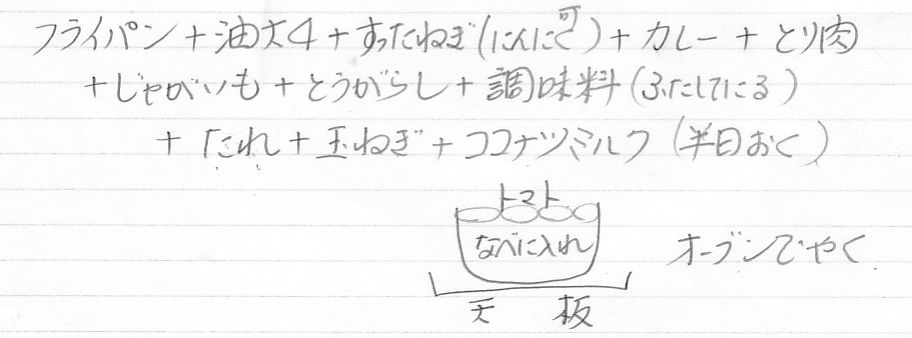 フライパン＋油大4＋すったねぎ(にんにく可)＋カレー＋とり肉
＋じゃがいも＋とうがらし＋調味料(ふたしてにる)
＋たれ＋玉ねぎ＋ココナツミルク(半日おく)
トマト
なべに入れ オーブンでやく
天板